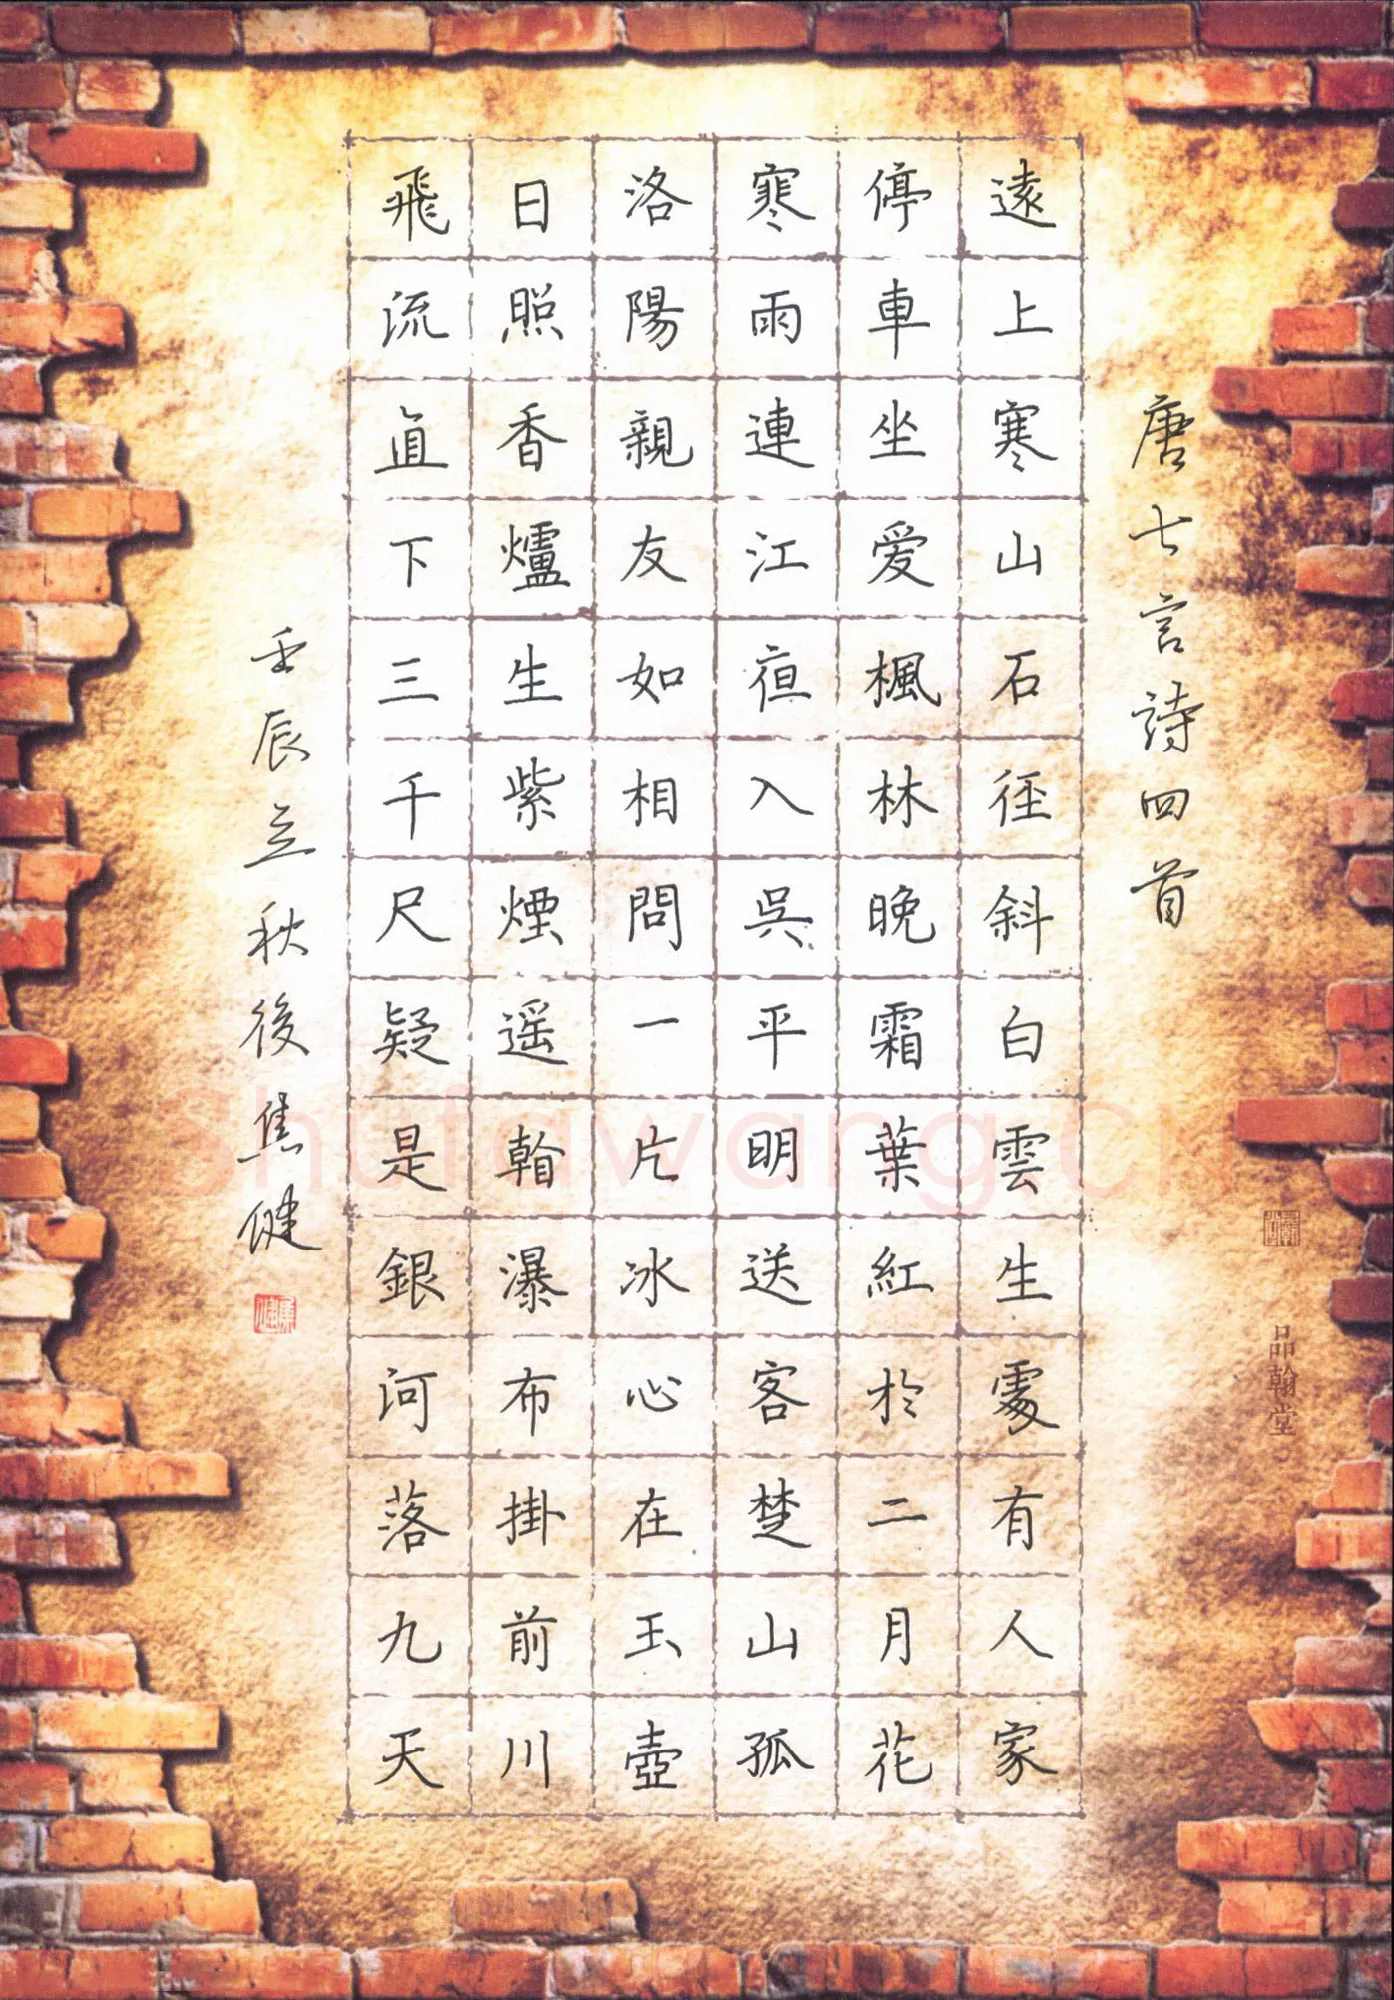 唐七言詩四首
遠上寒山石径斜白雲生處有人家
停車坐爱楓林晚霜葉紅於二月花
寒雨連江夜入吳平明送客楚山孤
洛陽親友如相問一片冰心在玉壺
日照香爐生紫煙遥看瀑布掛前川
飛流直下三千尺疑是銀河落九天
壬辰立秋後焦健
焦健
品翰堂
Shufawang.cn